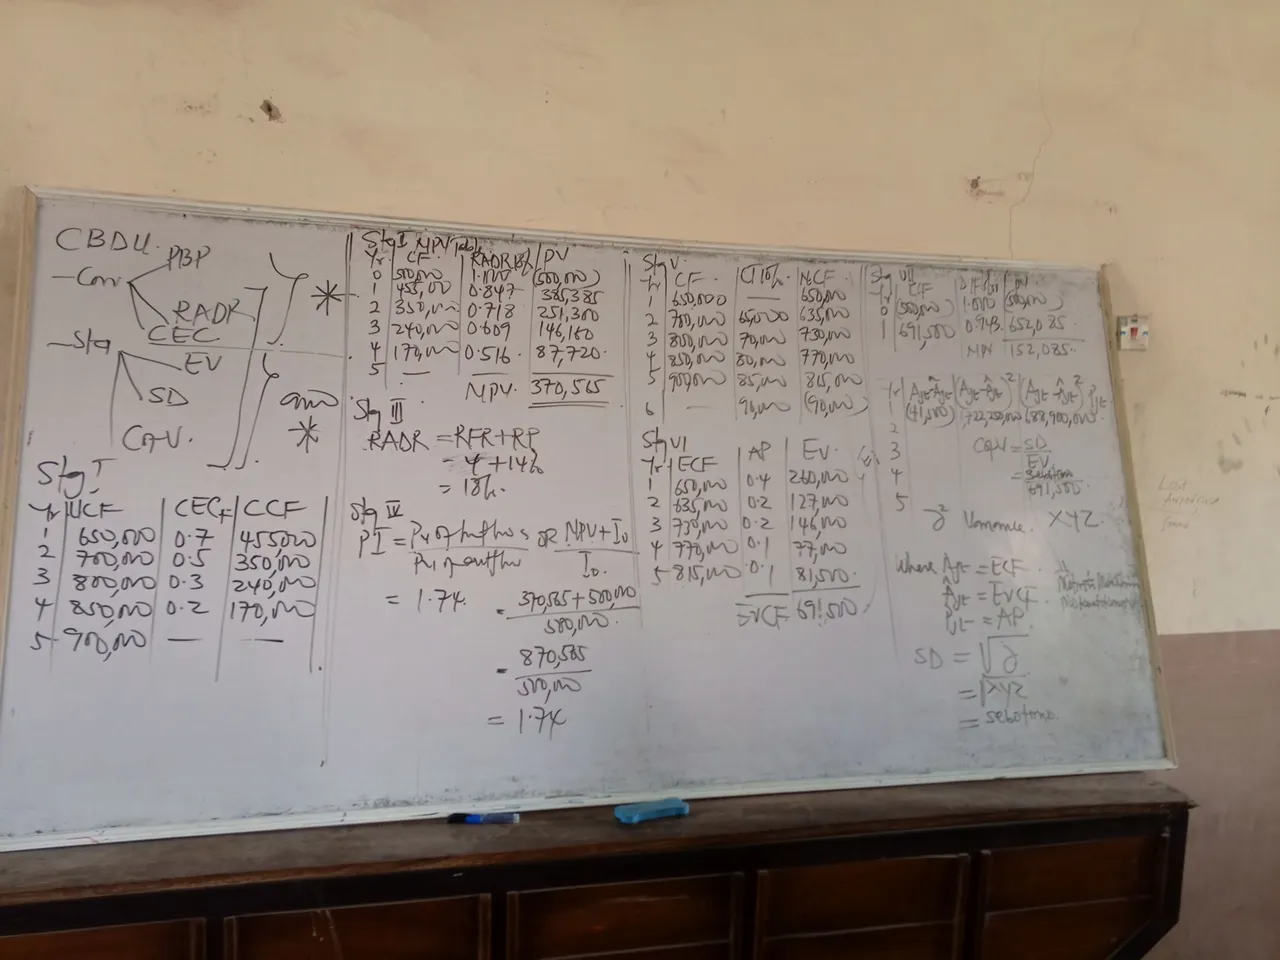 CBDU.
- Conv
PBP
RADR
CEC
- Stq
EV
SD
Co-V.
Stg I
Yr UCF CECF CCF
1 650,000 0.7 455,000
2 700,000 0.5 350,000
3 800,000 0.3 240,000
4 850,000 0.2 170,000
5 900,000 — —
Stg II NPV Table
Yr CF RADR 18% PV
0 500,000 1.000 (500,000)
1 455,000 0.847 385,385
2 350,000 0.718 251,300
3 240,000 0.609 146,160
4 170,000 0.516 87,720
5 — —
NPV. 370,565
Stg III
RADR = RFR + RP
= 4 + 14%
= 18%.
Stg IV
PI = OR NPV + I₀
I₀
= 1.74. = 370,565 + 500,000
500,000.
= 870,565
500,000
= 1.74
Stg V
Yr CF CT 10% NCF
1 650,000 — 650,000
2 700,000 65,000 635,000
3 800,000 70,000 730,000
4 850,000 80,000 770,000
5 900,000 85,000 815,000
6 — 90,000 (90,000)
Stg VI
Yr ECF AP EV
1 650,000 0.4 260,000
2 635,000 0.2 127,000
3 730,000 0.2 146,000
4 770,000 0.1 77,000
5 815,000 0.1 81,500
EVCF 691,500
Stg VII
Yr CF PV
0 (500,000) 1.000 (500,000)
1 691,500 0.943 652,085
NPV 152,085.
1 (41,500)
2
3
4
5
Co-V = SD
EV
691,500.
∂² Variance. XYZ.
Where Ajt = ECF.
Âjt = EVCF.
Pjt = AP.
SD = √∂
= √XYZ
= sebotomo.